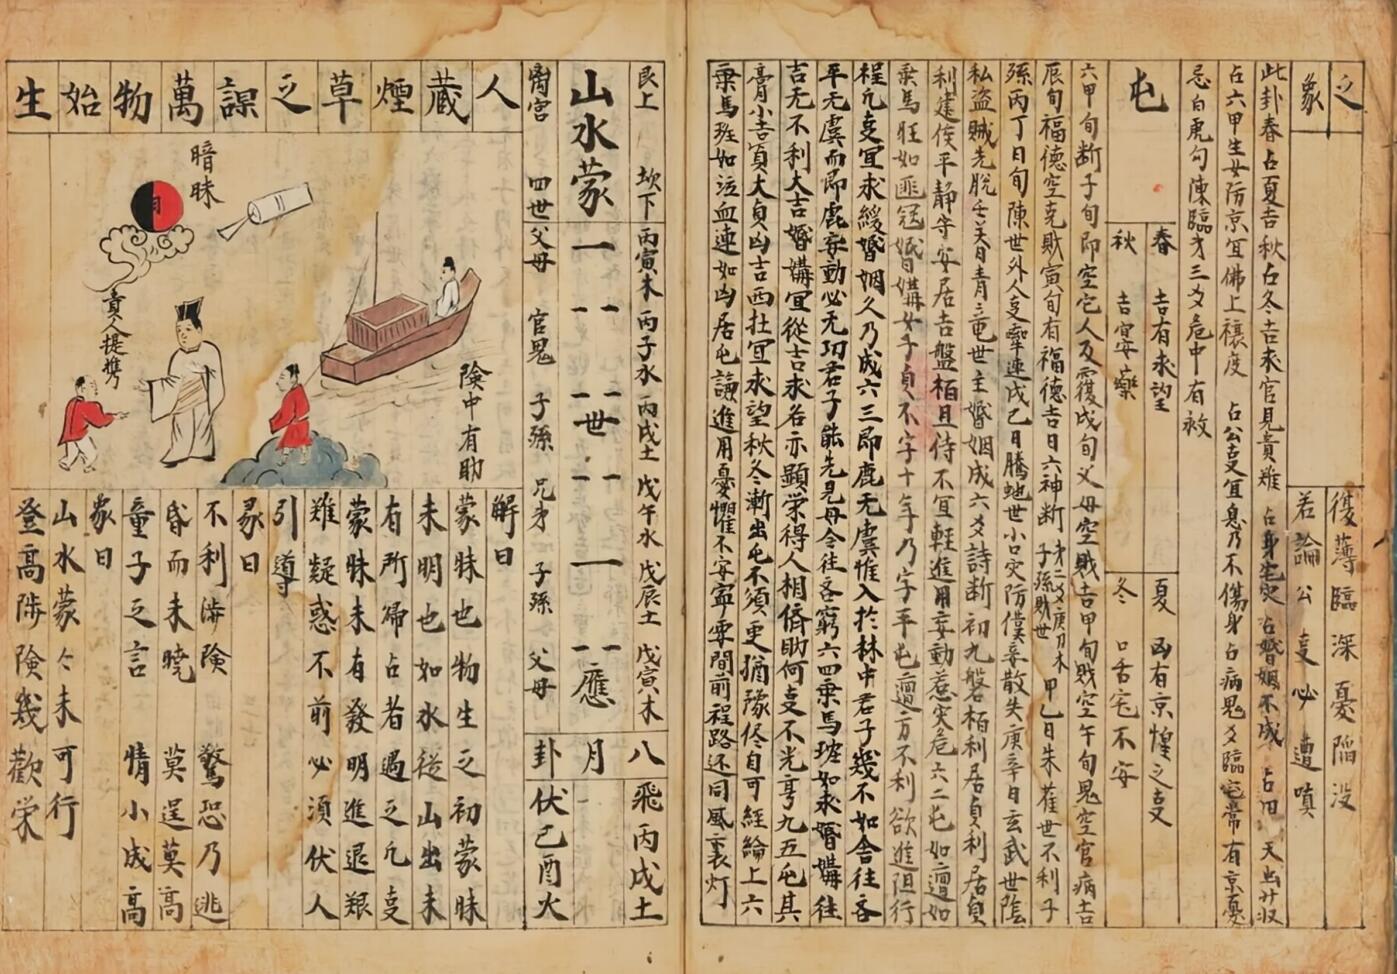 之
象
復薄臨深憂陷没
若論公㕛必遭嗔
此卦春占夏吉秋占冬吉求官見貴難
占婚姻不成
占六甲生女防京宜佛上禳度
占公㕛宜息乃不傷身占病鬼爻臨宅常有京憂
忌白虎勾陳臨才三爻危中有救
屯
春 吉有求望
夏 凶有京惶之㕛
秋 吉宴樂
冬 口舌宅不安
六甲旬断子旬即空宅人反覆戌旬父母空賊吉甲旬賊空午旬鬼空官病吉
辰旬福德空克財寅旬有福德吉日六神断
甲乙日朱雀世不利子
孫丙丁日旬陳世外人㕛牽連戊己日騰虵世小口灾防僕妾散失庚辛日玄武世陰
私盗賊先脱壬癸日青竜世主婚姻成六爻詩断初九磐栢利居貞利居貞
利建侯平静守安居吉盤栢且待不宜輕進用妄動惹灾危六二屯如邅如
乘馬班如匪寇婚媾女子貞不字十年乃字平屯邅方不利欲進阻行
程凢㕛宜求緩婚姻久乃成六三即鹿无虞惟入於林中君子幾不如舍往吝
平无虞而即鹿妄動必无功君子能先見毋令往吝窮六四乘馬班如求婚媾往
吉无不利大吉婚媾宜從吉求名亦顯栄得人相儕助何㕛不光亨九五屯其
膏小吉貞大貞凶吉西壮宜求望秋冬漸出屯不須更猶豫終自可經綸上六
乘馬班如泣血連如凶居屯諏進用憂懼不安寧要問前程路还同風裏灯
艮上 坎下
丙寅木 丙子水 丙戌土 戊午水 戊辰土 戊寅木
山水蒙
世
應
離宮 四世
父母 官鬼 子孫 兄弟 子孫 父母
八月卦
飛丙戌土
伏己酉火
人藏煙草之謀萬物始生
暗昧
貴人提携
險中有助
解曰
蒙昧也物生之初蒙昧
未明也如水從山出未
有所歸占者遇之凢㕛
蒙昧未有發明進退艱
難疑惑不前必須伏人
引導
彖曰
不利渉險 驚恐乃逃
昏而未曉 莫逞莫高
童子之言 情小成高
象曰
山水蒙〻未可行
登高陟険幾歡栄